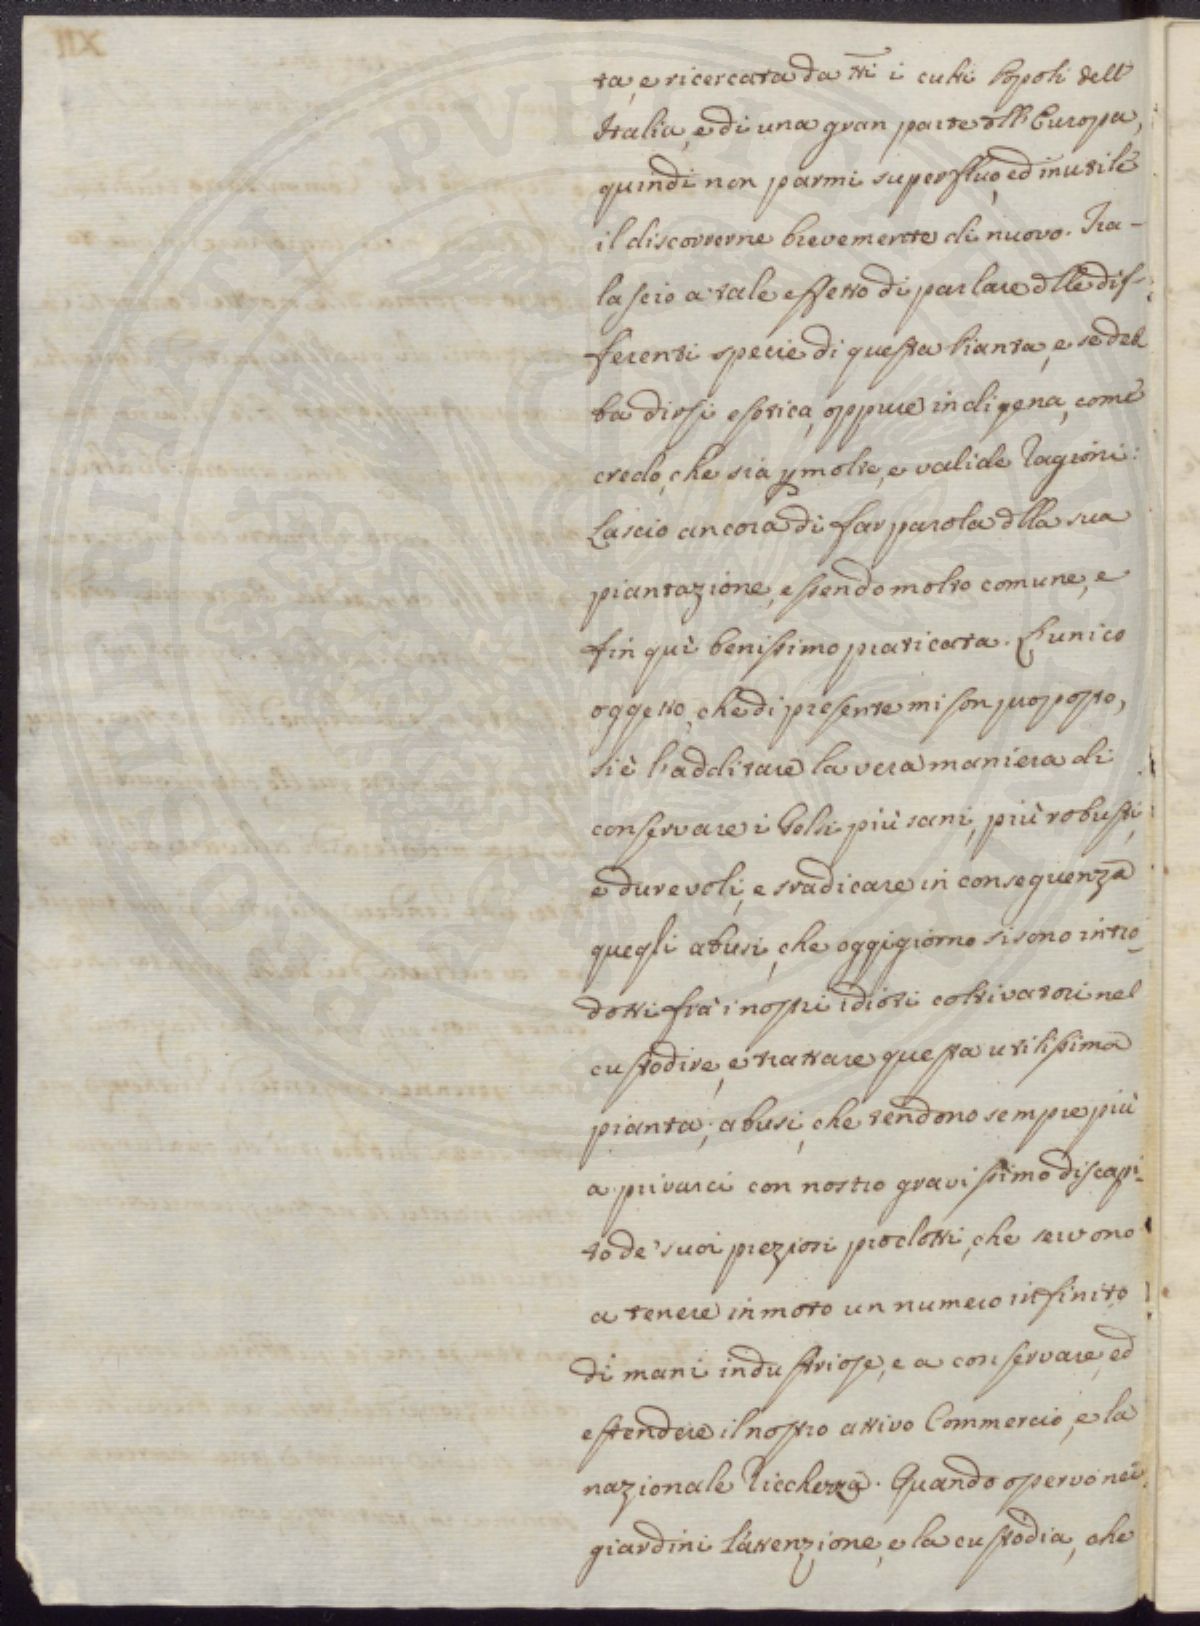 ta, e ricercata da tti i culti Popoli dell'
Italia, e di una gran parte dll'Europa,
quindi non parmi superfluo, ed inutile
il discorrerne brevemente di nuovo. Tra-
lascio a tale effetto di parlare dlle dif-
ferenti specie di questa Pianta, e se deb
ba dirsi esotica, oppure indigena, come
credo, che sia p molte, e valide Ragioni:
Lascio ancora di far parola dlla sua
piantazione, essendo molto comune, e
fin quì benissimo praticata. L'unico
oggetto, che di presente mi son proposto,
si è l'additare la vera maniera di
conservare i Gelsi più sani, più robusti,
e durevoli, e sradicare in conseguenza
quegli abusi, che oggigiorno si sono intro-
dotti frà i nostri idioti coltivatori nel
custodire, e trattare questa utilissima
pianta; abusi, che tendono sempre più
a privarci con nostro gravissimo discapi-
to de' suoi preziosi prodotti, che servono
a tenere in moto un numero infinito
di mani industriose, e a conservare, ed
estendere il nostro attivo Commercio, e la
nazionale Ricchezza. Quando osservo nei
giardini l'attenzione, e la custodia, che
PVBLICA